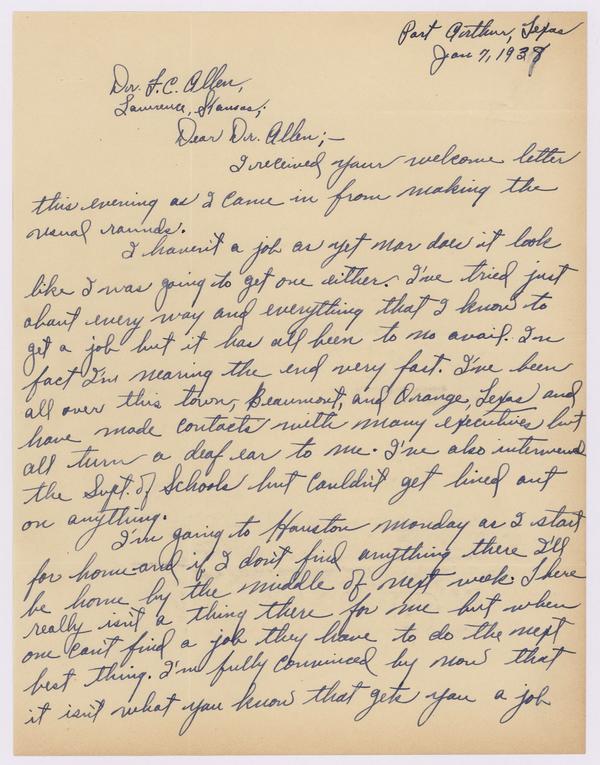 Port Arthur, Texas
Jan 7, 1938
Dr. F. C. Allen,
Lawrence, Kansas;
Dear Dr. Allen;—
I received your welcome letter
this evening as I came in from making the
usual rounds.
I haven't a job as yet nor does it look
like I was going to get one either. I've tried just
about every way and everything that I know to
get a job but it has all been to no avail. In
fact I'm nearing the end very fast. I've been
all over this town, Beaumont, and Orange, Texas and
have made contacts with many executives but
all turn a deaf ear to me. I've also interviewed
the Supt. of Schools but couldn't get lined out
on anything.
I'm going to Houston Monday as I start
for home and if I don't find anything there I'll
be home by the middle of next week. There
really isn't a thing there for me but when
one can't find a job they have to do the next
best thing. I'm fully convinced by now that
it isn't what you know that gets you a job